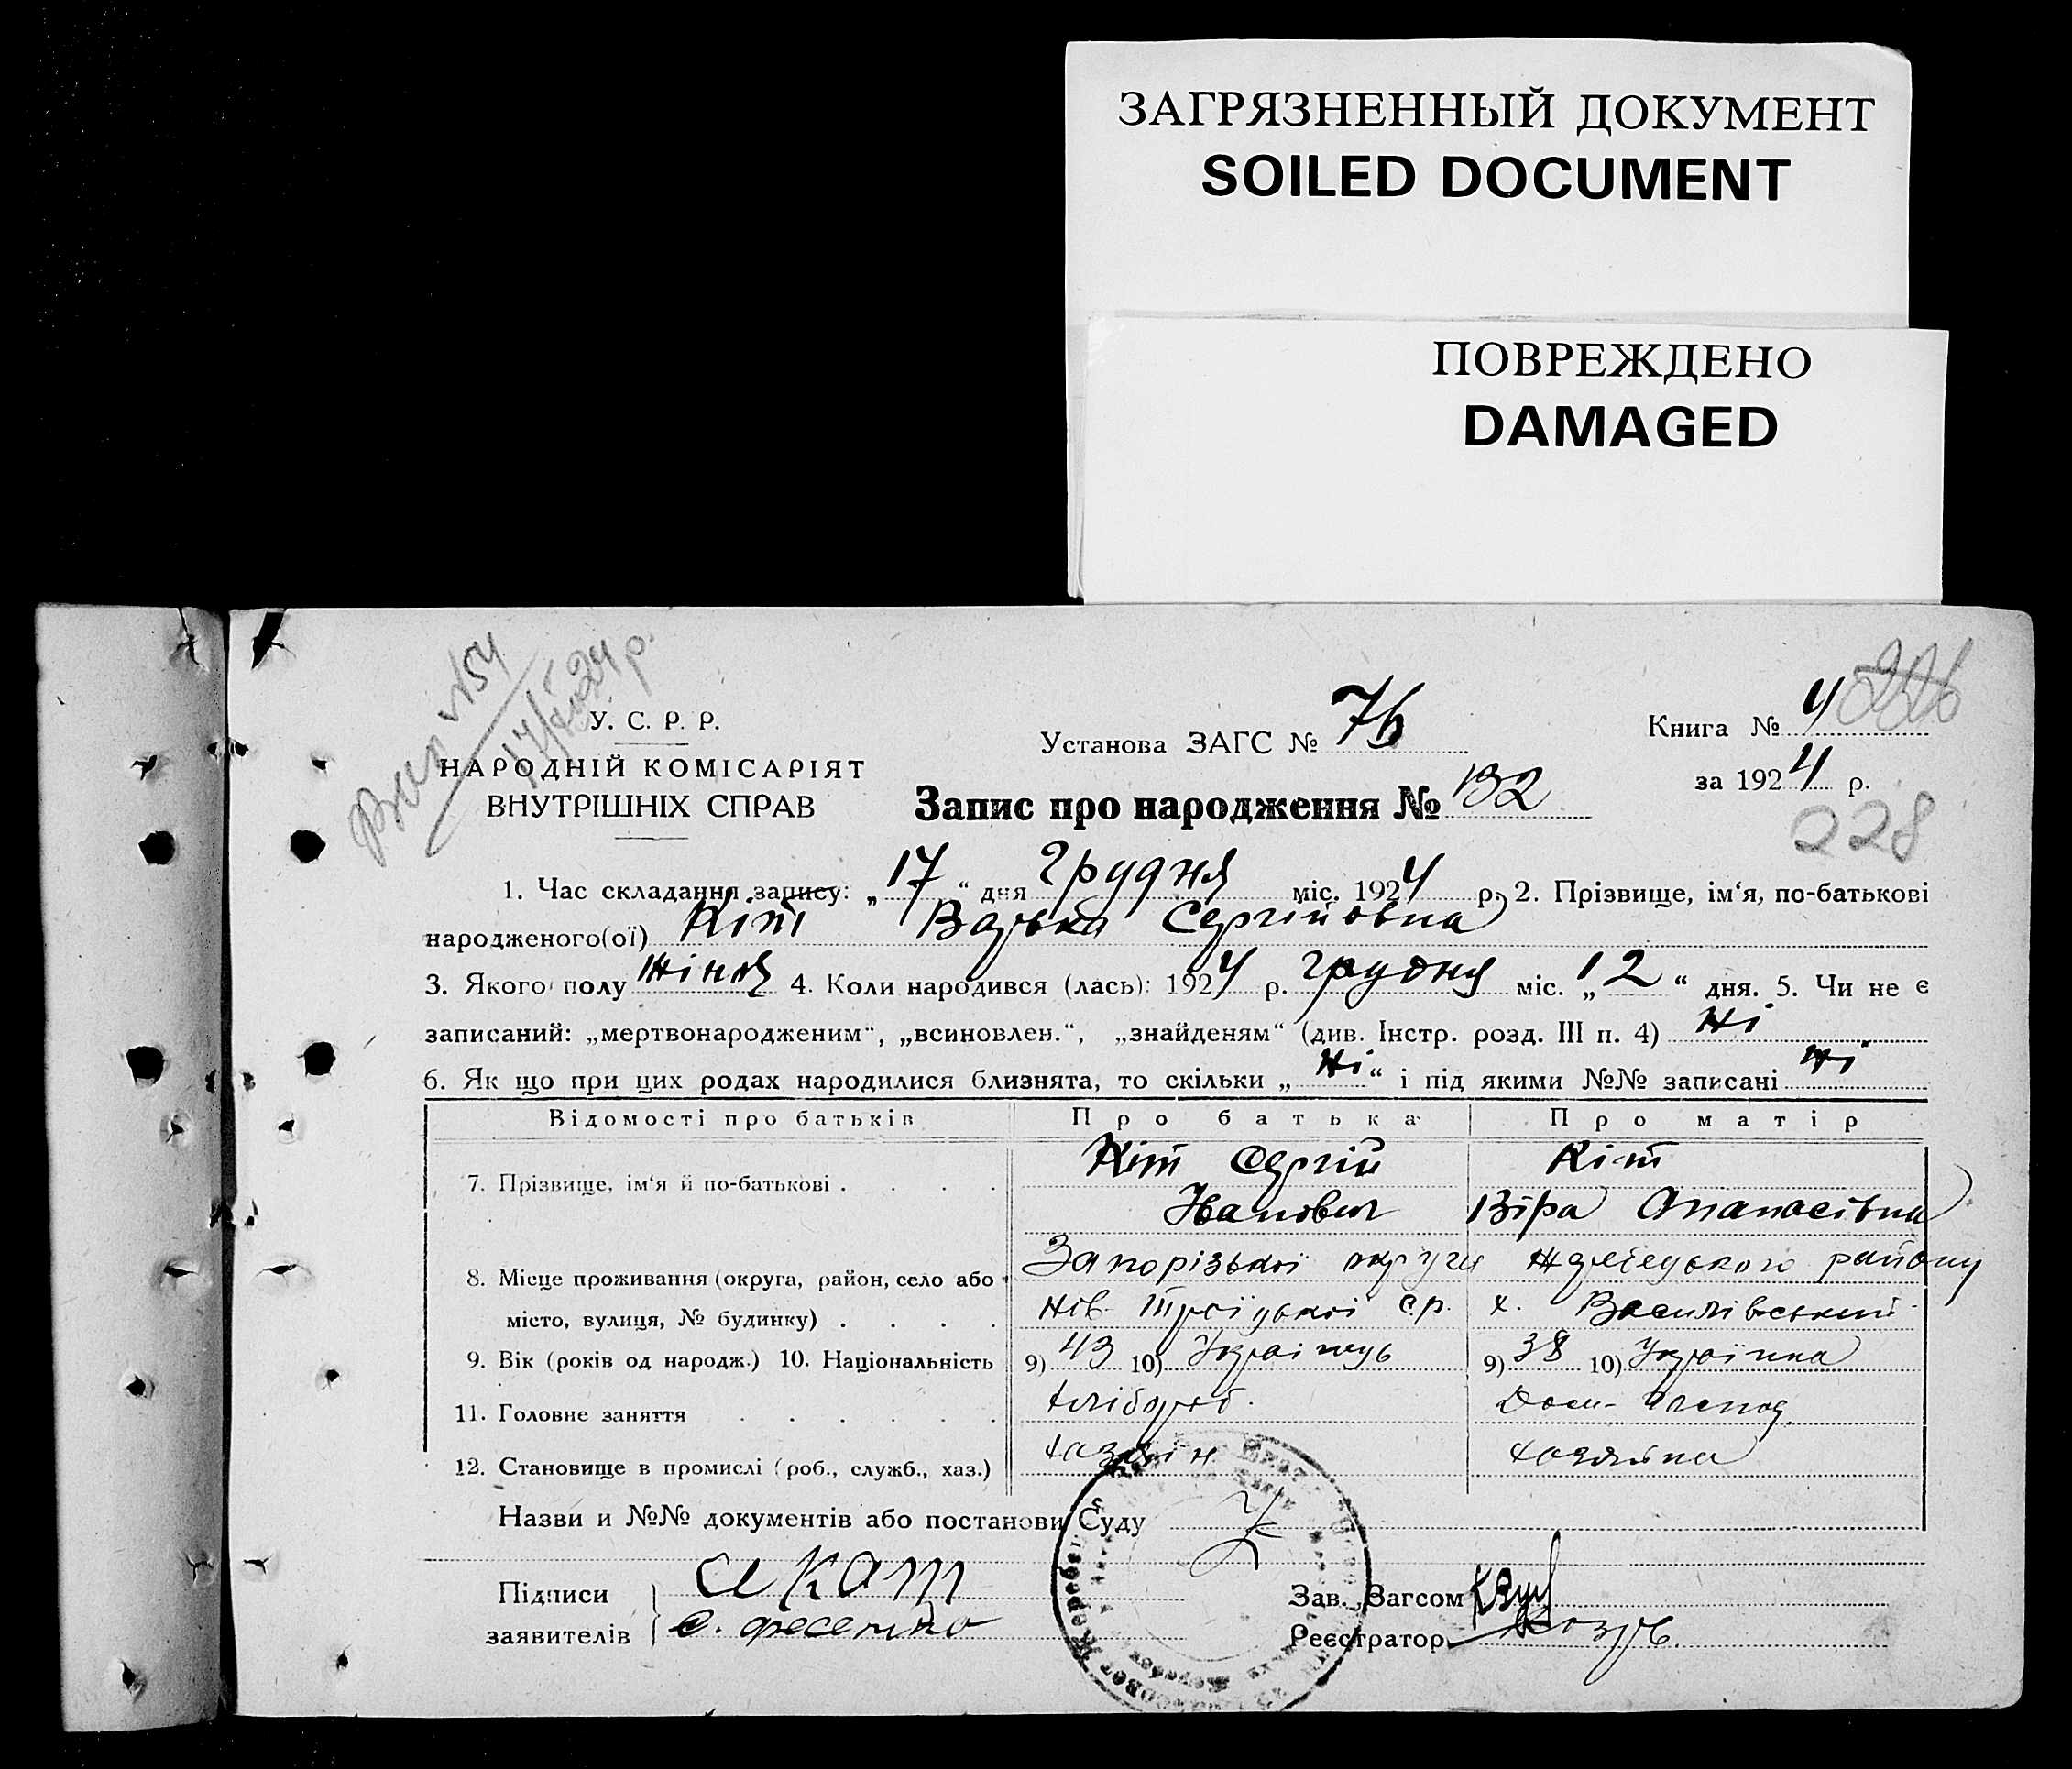 ЗАГРЯЗНЕННЫЙ ДОКУМЕНТ
SOILED DOCUMENT
ПОВРЕЖДЕНО
DAMAGED
№54
24 р.
У. С. Р. Р.
НАРОДНІЙ КОМІСАРІЯТ
ВНУТРІШНІХ СПРАВ
Установа ЗАГС № 76
Запис про народження № 132
Книга № 4
за 1924 р.
228
1. Час складання запису: „17“ дня Грудня міс. 1924 р. 2. Прізвище, ім‘я, по-батькові
народженого(ої) Кіт Сергійовна
3. Якого полу жіноч 4. Коли народився (лась): 1924 р. Грудня міс. „12“ дня. 5. Чи не є
записаний: „мертвонародженим“, „всиновлен.“, „знайденям“ (див. Інстр. розд. III п. 4) Ні
6. Як що при цих родах народилися близнята, то скільки „Ні“ і під якими №№ записані Ні
Відомості про батьків Про батька Про матір
7. Прізвище, ім‘я й по-батькові . . . . Кіт Сергій Кіт
Іванович Віра Опанасівна
8. Місце проживання (округа, район, село або Запорізької округи Жеребецького району
місто, вулиця, № будинку) . . . . Нів. Троїцької с.р. х. Василівський
9. Вік (років од народж.) 10. Національність 9) 43 10) Українець 9) 38 10) Українка
11. Головне заняття . . . . . . хлібороб. Дом. господ.
12. Становище в промислі (роб., служб., хаз.) хазяїн хазяйка
Назви и №№ документів або постанови Суду
Підписи
заявителів
С Кот
Є. Фесенко
Зав. Загсом
Реєстратор